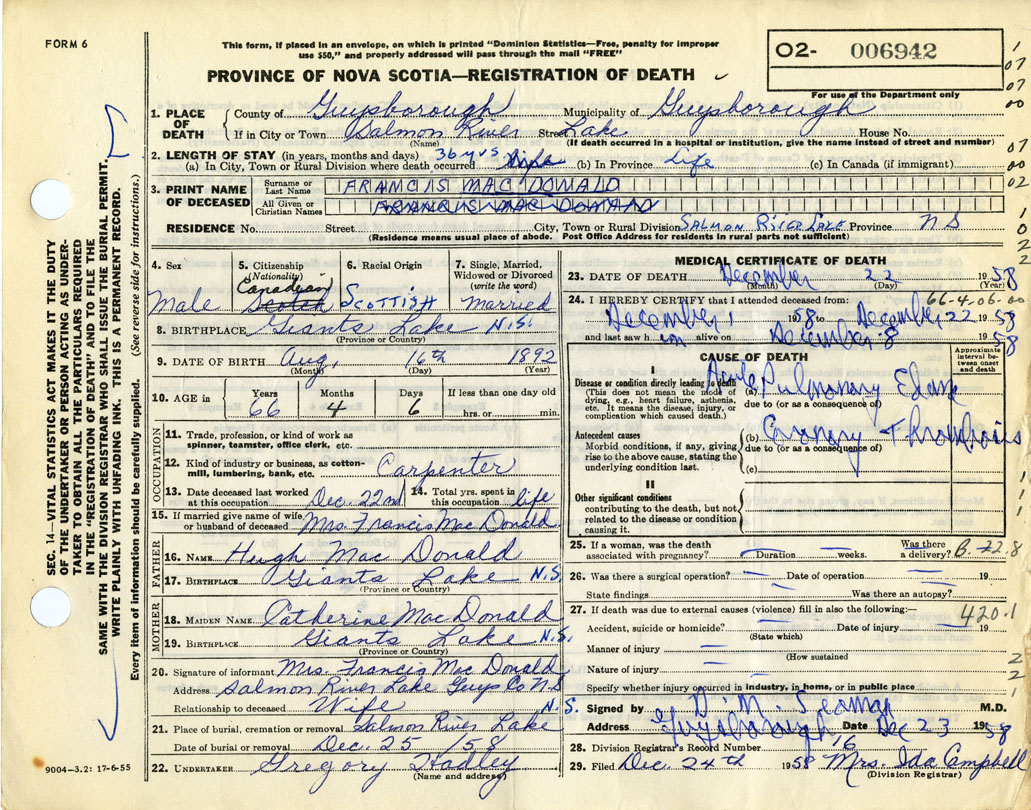 FORM 6
This form, if placed in an envelope, on which is printed "Dominion Statistics—Free, penalty for improper
use $50," and properly addressed will pass through the mail "FREE"
O2- 006942
PROVINCE OF NOVA SCOTIA—REGISTRATION OF DEATH
For use of the Department only
1. PLACE OF DEATH County of Guysborough Municipality of Guysborough
If in City or Town Salmon River Street Lake House No.
(Name) (If death occurred in a hospital or institution, give name instead of street and number)
2. LENGTH OF STAY (in years, months and days) 36 yrs
(a) In City, Town or Rural Division where death occurred (b) In Province life (c) In Canada (if immigrant)
3. PRINT NAME OF DECEASED Surname or Last Name FRANCIS MAC DONALD
All Given or Christian Names FRANCIS MAC DONALD
RESIDENCE No. Street City, Town or Rural Division SALMON RIVER LAKE Province NS
(Residence means usual place of abode. Post Office Address for residents in rural parts not sufficient)
4. Sex Male
5. Citizenship (Nationality) Canadian Scotch
6. Racial Origin SCOTTISH
7. Single, Married, Widowed or Divorced (write the word) Married
8. BIRTHPLACE Giants Lake N.S.
(Province or Country)
9. DATE OF BIRTH Aug. 16th 1892
(Month) (Day) (Year)
10. AGE in Years 66 Months 4 Days 6 If less than one day old hrs. or min.
OCCUPATION
11. Trade, profession, or kind of work as spinner, teamster, office clerk, etc.
12. Kind of industry or business, as cotton-mill, lumbering, bank, etc. Carpenter
13. Date deceased last worked at this occupation Dec. 22nd 14. Total yrs. spent in this occupation life
15. If married give name of wife or husband of deceased Mrs. Francis Mac Donald
FATHER
16. NAME Hugh Mac Donald
17. BIRTHPLACE Giants Lake N.S.
(Province or Country)
MOTHER
18. MAIDEN NAME Catherine MacDonald
19. BIRTHPLACE Giants Lake N.S.
(Province or Country)
20. Signature of informant Mrs. Francis Mac Donald
Address Salmon River Lake Guys Co NS
Relationship to deceased Wife N.S.
21. Place of burial, cremation or removal Salmon River Lake
Date of burial or removal Dec. 25 /58
22. UNDERTAKER Gregory Hadley
(Name and address)
MEDICAL CERTIFICATE OF DEATH
23. DATE OF DEATH December 22 1958
(Month) (Day) (Year)
24. I HEREBY CERTIFY that I attended deceased from: 66-4-06-00
December 1 1958 to December 22 1958
and last saw him alive on December 8 1958
CAUSE OF DEATH
Approximate interval between onset and death
I
Disease or condition directly leading to death (a) Acute Pulmonary Edema
(This does not mean the mode of dying, e.g., heart failure, asthenia, etc. It means the disease, injury, or complication which caused death.)
due to (or as a consequence of)
Antecedent causes (b) Coronary Thrombosis
Morbid conditions, if any, giving rise to the above cause, stating the underlying condition last.
due to (or as a consequence of)
(c)
II
Other significant conditions
contributing to the death, but not related to the disease or condition causing it.
25. If a woman, was the death associated with pregnancy? Duration weeks. Was there a delivery? B. 22.8
26. Was there a surgical operation? Date of operation 19
State findings Was there an autopsy?
27. If death was due to external causes (violence) fill in also the following:— 420.1
Accident, suicide or homicide? Date of injury 19
(State which)
Manner of injury
(How sustained)
Nature of injury
Specify whether injury occurred in industry, in home, or in public place
Signed by D. N. Seaman M.D.
Address Guysborough Date Dec 23 1958
28. Division Registrar's Record Number 16
29. Filed Dec. 24th 1958 Mrs. Ida Campbell
(Division Registrar)
SEC. 14—VITAL STATISTICS ACT MAKES IT THE DUTY
OF THE UNDERTAKER OR PERSON ACTING AS UNDER-
TAKER TO OBTAIN ALL THE PARTICULARS REQUIRED
IN THE "REGISTRATION OF DEATH" AND TO FILE THE
SAME WITH THE DIVISION REGISTRAR WHO SHALL ISSUE THE BURIAL PERMIT.
WRITE PLAINLY WITH UNFADING INK. THIS IS A PERMANENT RECORD.
Every item of information should be carefully supplied. (See reverse side for instructions.)
9004—3.2: 17-6-55
1
07
07
00
07
00
02
1
0
2
2
1
1
1
2
2
1